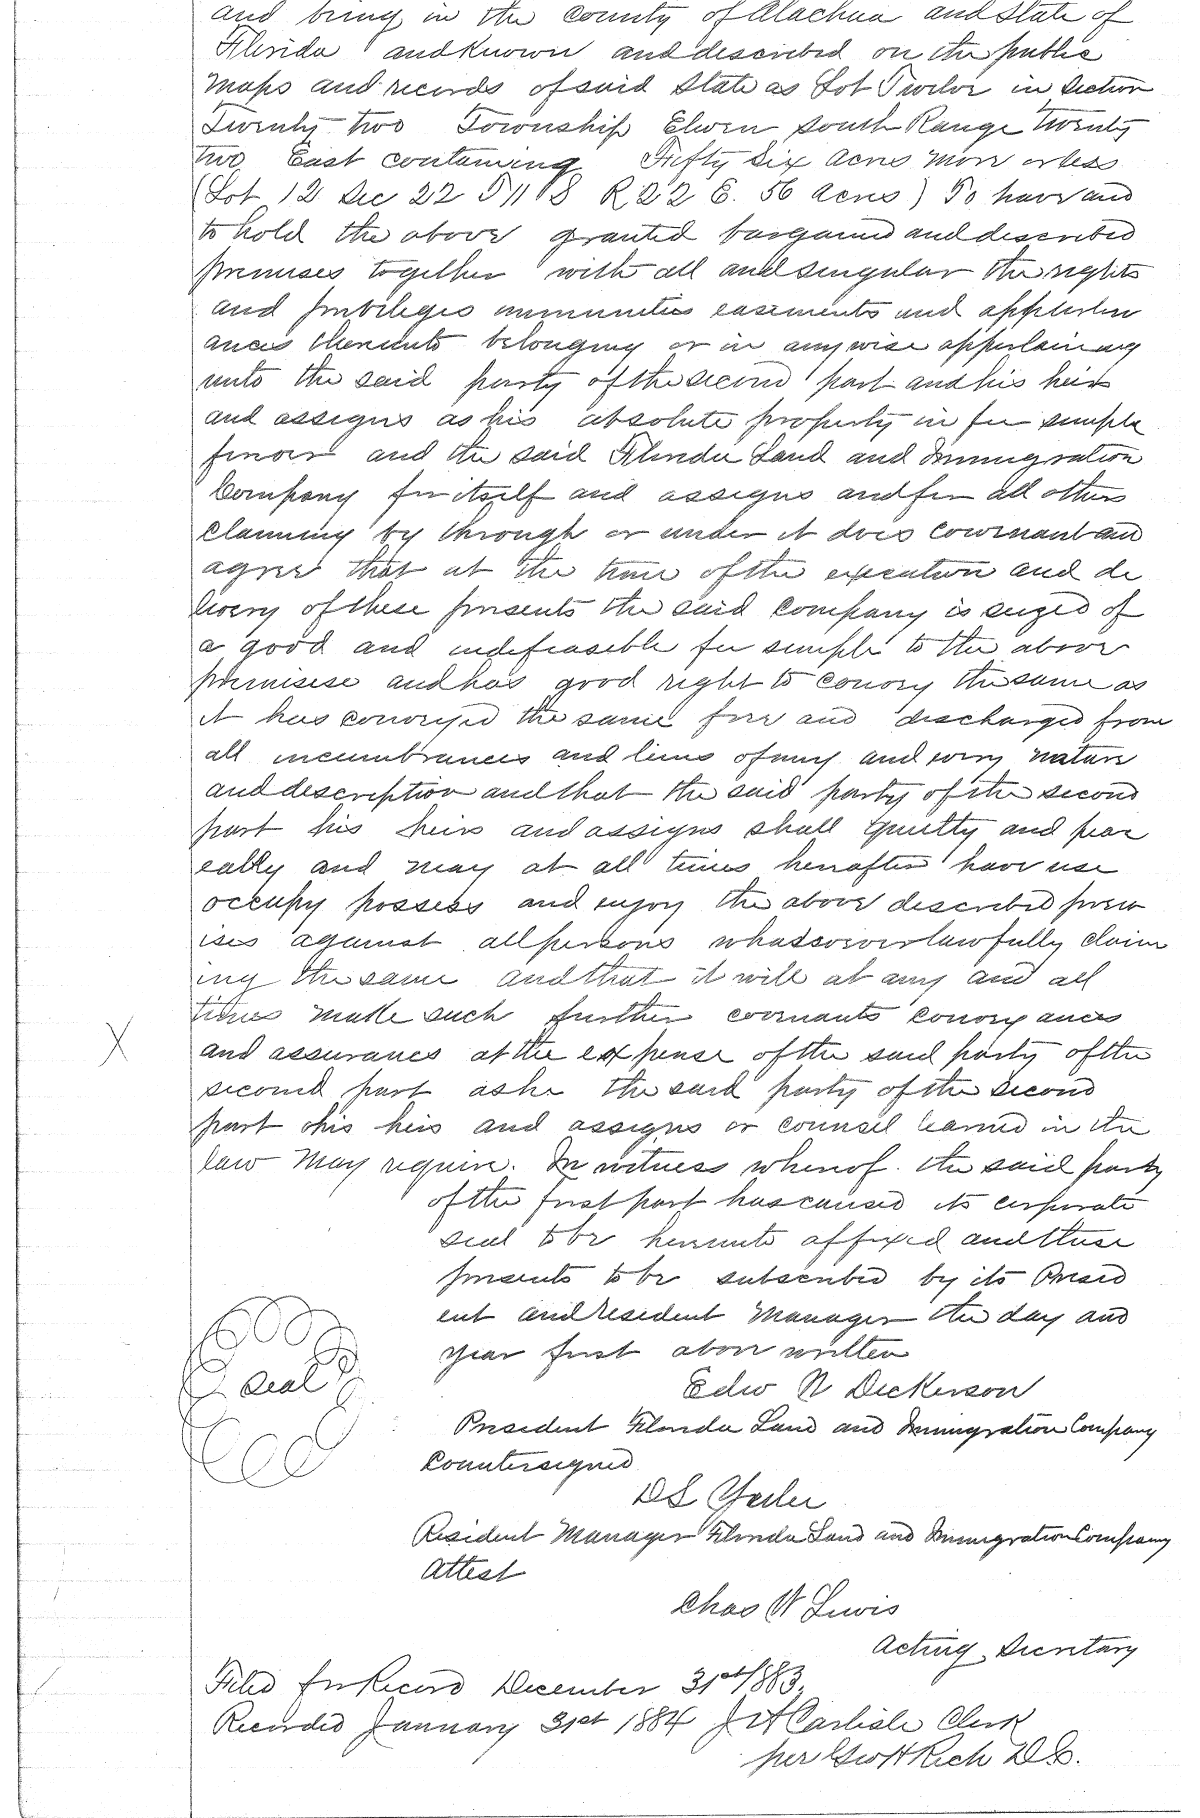 and being in the county of Alachua and State of
Florida and known and described on the public
maps and records of said State as Lot Twelve in Section
Twenty two Township Eleven South Range Twenty
two East containing Fifty Six Acres more or less
(Lot 12 Sec 22 T 11 S R 22 E. 56 Acres) To have and
to hold the above granted bargained and described
premises together with all and singular the rights
and privileges immunities easements and appurten
ances thereunto belonging or in anywise appertaining
unto the said party of the second part and his heirs
and assigns as his absolute property in fee simple
forever and the said Florida Land and Immigration
Company for itself and assigns and for all others
claiming by through or under it does covenant and
agree that at the time of the execution and de
livery of these presents the said Company is seized of
a good and indefeasible fee simple to the above
premisese and has good right to convey the same as
it has conveyed the same free and discharged from
all incumbrances and liens of any and every nature
and description and that the said party of the second
part his heirs and assigns shall quietly and peac
eably and may at all times hereafter have use
occupy possess and enjoy the above described prem
ises against all persons whatsoever lawfully claim
ing the same and that it will at any and all
times make such further covenants conveyances
X
and assurances at the expense of the said party of the
second part as he the said party of the second
part his heirs and assigns or counsel learned in the
law may require. In witness whereof. the said party
of the first part has caused its corporate
seal to be hereunto affixed and these
presents to be subscribed by its Presid
ent and resident manager the day and
year first above written
Seal
Edw N Dickerson
President Florida Land and Immigration Company
Countersigned
D L Yulee
Resident Manager Florida Land and Immigration Company
Attest
Chas W Lewis
Acting Secretary
Filed for Record December 31st/1883.
Recorded January 31st 1884 J A Carlisle Clerk
per Geo H Rich D.C.